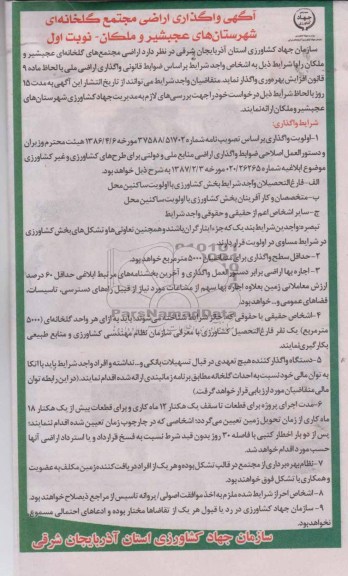 جهاد
آگهی واگذاری اراضی مجتمع گلخانه‌ای
شهرستان‌های عجبشیر و ملکان - نوبت اول
سازمان جهاد کشاورزی استان آذربایجان شرقی در نظر دارد اراضی مجتمع‌های گلخانه‌ای عجبشیر و
ملکان را با شرایط ذیل به اشخاص واجد شرایط براساس ضوابط قانونی واگذاری اراضی ملی با لحاظ ماده ۹
قانون افزایش بهره‌وری واگذار نماید. متقاضیان واجد شرایط می‌توانند از تاریخ انتشار این آگهی به مدت ۱۵
روز با لحاظ شرایط ذیل درخواست خود را جهت بررسی‌های لازم به مدیریت جهاد کشاورزی شهرستان‌های
عجبشیر و ملکان ارائه نمایند.
شرایط واگذاری:
۱- اولویت واگذاری براساس تصویب نامه شماره ۳۷۵۸۸/۵۱۷۰۲ مورخه ۱۳۸۶/۴/۶ هیئت محترم وزیران
و دستورالعمل اصلاحی ضوابط واگذاری اراضی منابع ملی و دولتی برای طرح‌های کشاورزی و غیر کشاورزی
موضوع ابلاغیه شماره ۰۲۰/۲۶۲۶۵ مورخه ۱۳۸۷/۳/۳ به شرح ذیل خواهد بود.
الف- فارغ‌التحصیلان واجد شرایط بخش کشاورزی با اولویت ساکنین محل
ب- متخصصان و کارآفرینان بخش کشاورزی با اولویت ساکنین محل
ج- سایر اشخاص اعم از حقیقی و حقوقی واجد شرایط
تبصره: واجدین شرایط بند یک که جزء ایثارگران باشند و همچنین تعاونی‌ها و تشکل‌های بخش کشاورزی
در شرایط مساوی در اولویت قرار دارند.
۲- حداقل سطح واگذاری برای متقاضیان ۵۰۰۰ مترمربع خواهد بود.
۳- اجاره بها اراضی برابر دستورالعمل واگذاری و آخرین بخشنامه‌های مرتبط ابلاغی حداقل ۶۰ درصد
ارزش معاملاتی زمین بعلاوه اجاره بها سهم از مشاعات مورد نیاز از قبیل راه‌های دسترسی، تاسیسات،
فضاهای عمومی و... خواهد بود.
۴- اشخاص حقیقی یا حقوقی باید به ازای هر واحد گلخانه‌ای (۵۰۰۰
مترمربع) یک نفر فارغ‌التحصیل کشاورزی با معرفی سازمان نظام مهندسی کشاورزی و منابع طبیعی
بکار گیری نمایند.
۵- دستگاه واگذار کننده هیچ تعهدی در قبال تسهیلات بانکی و... نداشته و افراد واجد شرایط باید با اتکا
به توان مالی خود نسبت به احداث گلخانه مطابق برنامه زمانبندی ارائه شده اقدام نمایند. (در این رابطه توان
مالی متقاضیان مورد ارزیابی قرار خواهد گرفت)
۶- مدت اجرای پروژه برای قطعات تا سقف یک هکتار ۱۲ ماه کاری و برای قطعات بیش از یک هکتار ۱۸
ماه کاری از زمان تحویل زمین تعیین می‌گردد؛ اشخاصی که در چارچوب زمان تعیین شده اقدام ننمایند؛
پس از دو بار اخطار کتبی با فاصله ۳۰ روز بدون قید شرط نسبت به فسخ قرارداد و با استرداد اراضی آنها
حسب مورد اقدام خواهد شد.
۷- نظام بهره‌برداری از مجتمع در قالب تشکل بوده و هر یک از افراد دریافت کننده زمین مکلف به عضویت
و همکاری با تشکل فوق خواهند بود.
۸- اشخاص احراز شرایط شده ملزم به اخذ موافقت اصولی / پروانه تاسیس از مراجع ذیصلاح خواهند بود.
۹- سازمان جهاد کشاورزی در رد یا قبول هر یک از تقاضاها مختار بوده و ادعاهای احتمالی مسموع
نخواهد بود.
سازمان جهاد کشاورزی استان آذربایجان شرقی